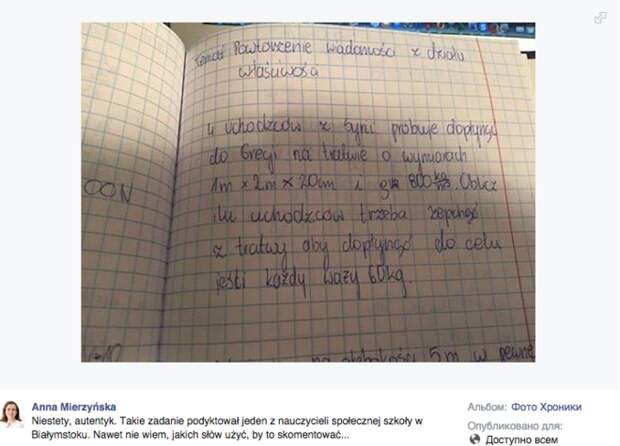 Temat: Powtórzenie wiadomości z działu
właściwości
4 uchodźców z Syrii próbuje dopłynąć
do Grecji na tratwie o wymiarach
1m x 2m x 20cm i 800 kg/m³. Oblicz
ilu uchodźców trzeba zepchnąć
z tratwy aby dopłynąć do celu
jeśli każdy waży 60kg.
na głębokości 5m w pewnej
Anna Mierzyńska
Niestety, autentyk. Takie zadanie podyktował jeden z nauczycieli społecznej szkoły w
Białymstoku. Nawet nie wiem, jakich słów użyć, by to skomentować...
Альбом: Фото Хроники
Опубликовано для:
Доступно всем